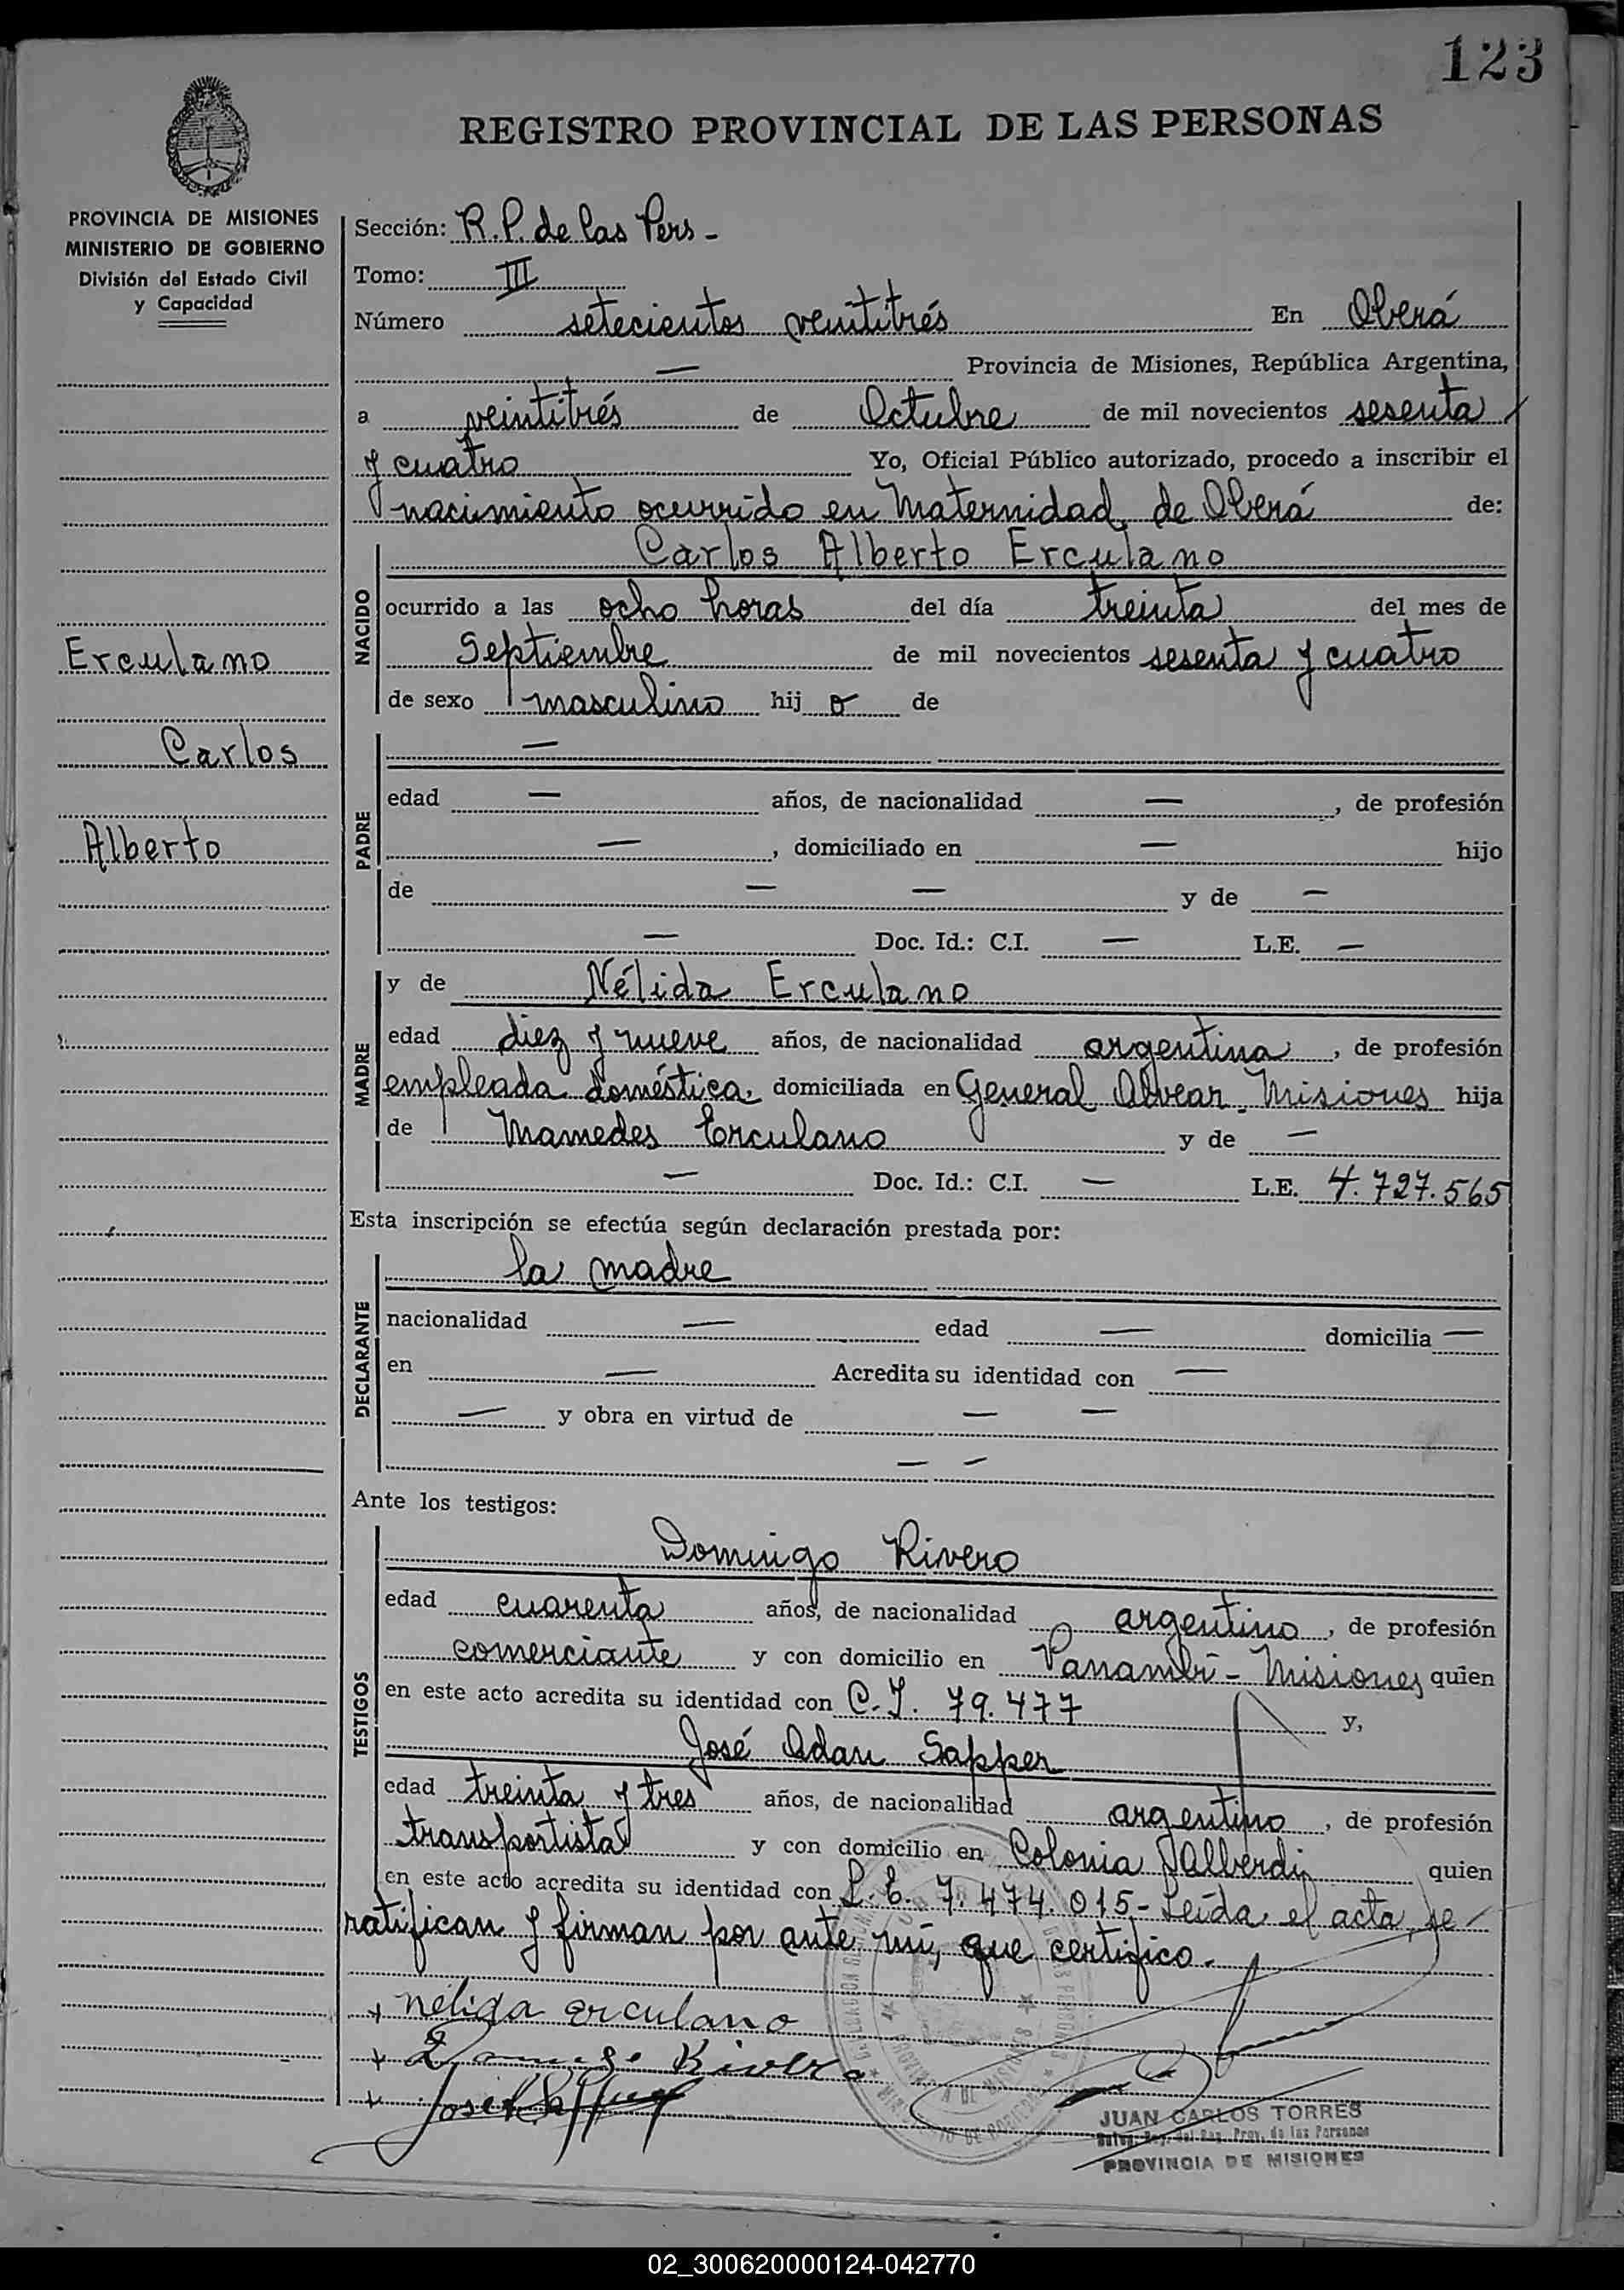 123
REGISTRO PROVINCIAL DE LAS PERSONAS
PROVINCIA DE MISIONES
MINISTERIO DE GOBIERNO
División del Estado Civil
y Capacidad
Erculano
Carlos
Alberto
Sección: R.P. de las Pers -
Tomo: III
Número setecientos veintitrés En Oberá
— Provincia de Misiones, República Argentina,
a veintitrés de Octubre de mil novecientos sesenta
y cuatro Yo, Oficial Público autorizado, procedo a inscribir el
nacimiento ocurrido en Maternidad de Oberá de:
NACIDO
Carlos Alberto Erculano
ocurrido a las ocho horas del día treinta del mes de
Septiembre de mil novecientos sesenta y cuatro
de sexo masculino hij o de
PADRE
—
edad — años, de nacionalidad —, de profesión
—, domiciliado en — hijo
de — — y de —
— Doc. Id.: C.I. — L.E. —
MADRE
y de Nélida Erculano
edad diez y nueve años, de nacionalidad argentina, de profesión
empleada doméstica, domiciliada en General Alvear - Misiones hija
de Mamedes Erculano y de —
— Doc. Id.: C.I. — L.E. 4.727.565
Esta inscripción se efectúa según declaración prestada por:
DECLARANTE
la madre
nacionalidad — edad — domicilia —
en — Acredita su identidad con —
— y obra en virtud de — —
— —
Ante los testigos:
TESTIGOS
Domingo Rivero
edad cuarenta años, de nacionalidad argentino, de profesión
comerciante y con domicilio en Panambí - Misiones quien
en este acto acredita su identidad con C.I. 79.477 y,
José Adan Sapper
edad treinta y tres años, de nacionalidad argentino, de profesión
transportista y con domicilio en Colonia Alberdi quien
en este acto acredita su identidad con L.E. 7.474.015 - Leída el acta, se
ratifican y firman por ante mí, que certifico.
+ nelida erculano
+ Domingo Rivero
+ José
JUAN CARLOS TORRES
del Reg. Prov. de las Personas
PROVINCIA DE MISIONES
02_300620000124-042770